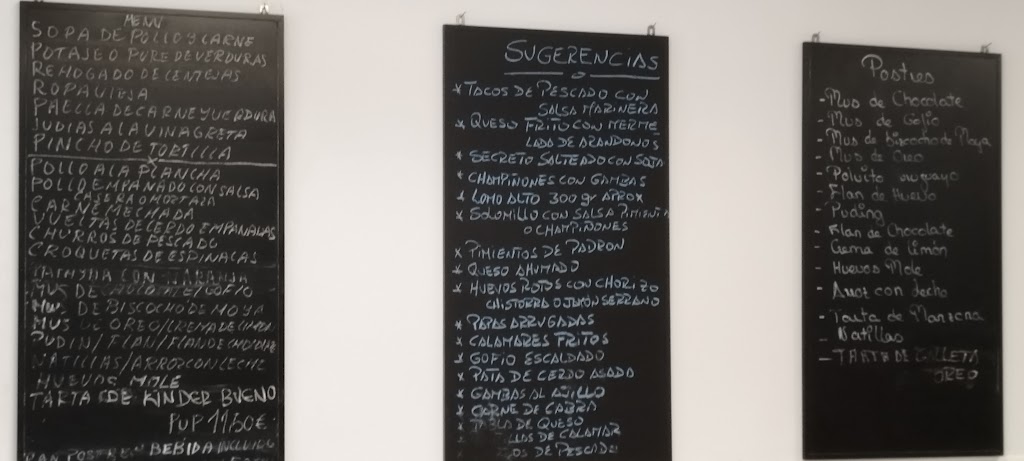 MENU
SOPA DE POLLO Y CARNE
POTAJE O PURE DE VERDURAS
REHOGADO DE LENTEJAS
ROPA VIEJA
PAELLA DE CARNE Y VERDURA
JUDIAS A LA VINAGRETA
PINCHO DE TORTILLA
POLLO A LA PLANCHA
POLLO EMPANADO CON SALSA
CASERA O MOSTAZA
CARNE MECHADA
VUELTAS DE CERDO EMPANADAS
CHURROS DE PESCADO
CROQUETAS DE ESPINACAS
CON
MUS DE GOFIO
MUS DE BISCOCHO DE MOYA
MUS DE OREO/CREMA DE LIMON
PUDIN/FLAN/FLAN DE CHOCOLATE
NATILLAS/ARROZ CON LECHE
HUEVOS MOLE
TARTA DE KINDER BUENO
PUP 11,50€
PAN POSTRE BEBIDA INCLUIDO
SUGERENCIAS
* TACOS DE PESCADO CON
SALSA MARINERA
* QUESO FRITO CON MERME
LADA DE ARANDONOS
* SECRETO SALTEADO CON SOJA
* CHAMPIÑONES CON GAMBAS
* LOMO ALTO 300 gr APROX
* SOLOMILLO CON SALSA PIMIENTA
O CHAMPIÑONES
* PIMIENTOS DE PADRON
* QUESO AHUMADO
* HUEVOS ROTOS CON CHORIZO
CHISTORRA O JAMON SERRANO
* PAPAS ARRUGADAS
* CALAMARES FRITOS
* GOFIO ESCALDADO
* PATA DE CERDO ASADA
* GAMBAS AL AJILLO
* CARNE DE CABRA
* TABLA DE QUESO
DE CALAMAR
DE PESCADO
Postres
- Mus de Chocolate
- Mus de Gofio
- Mus de Biscocho de Moya
- Mus de Oreo
- Polvito uruguayo
- Flan de Huevo
- Puding
- Flan de Chocolate
- Crema de Limón
- Huevos Mole
- Arroz con leche
- Tarta de Manzana
- Natillas
- TARTA DE GALLETA
OREO